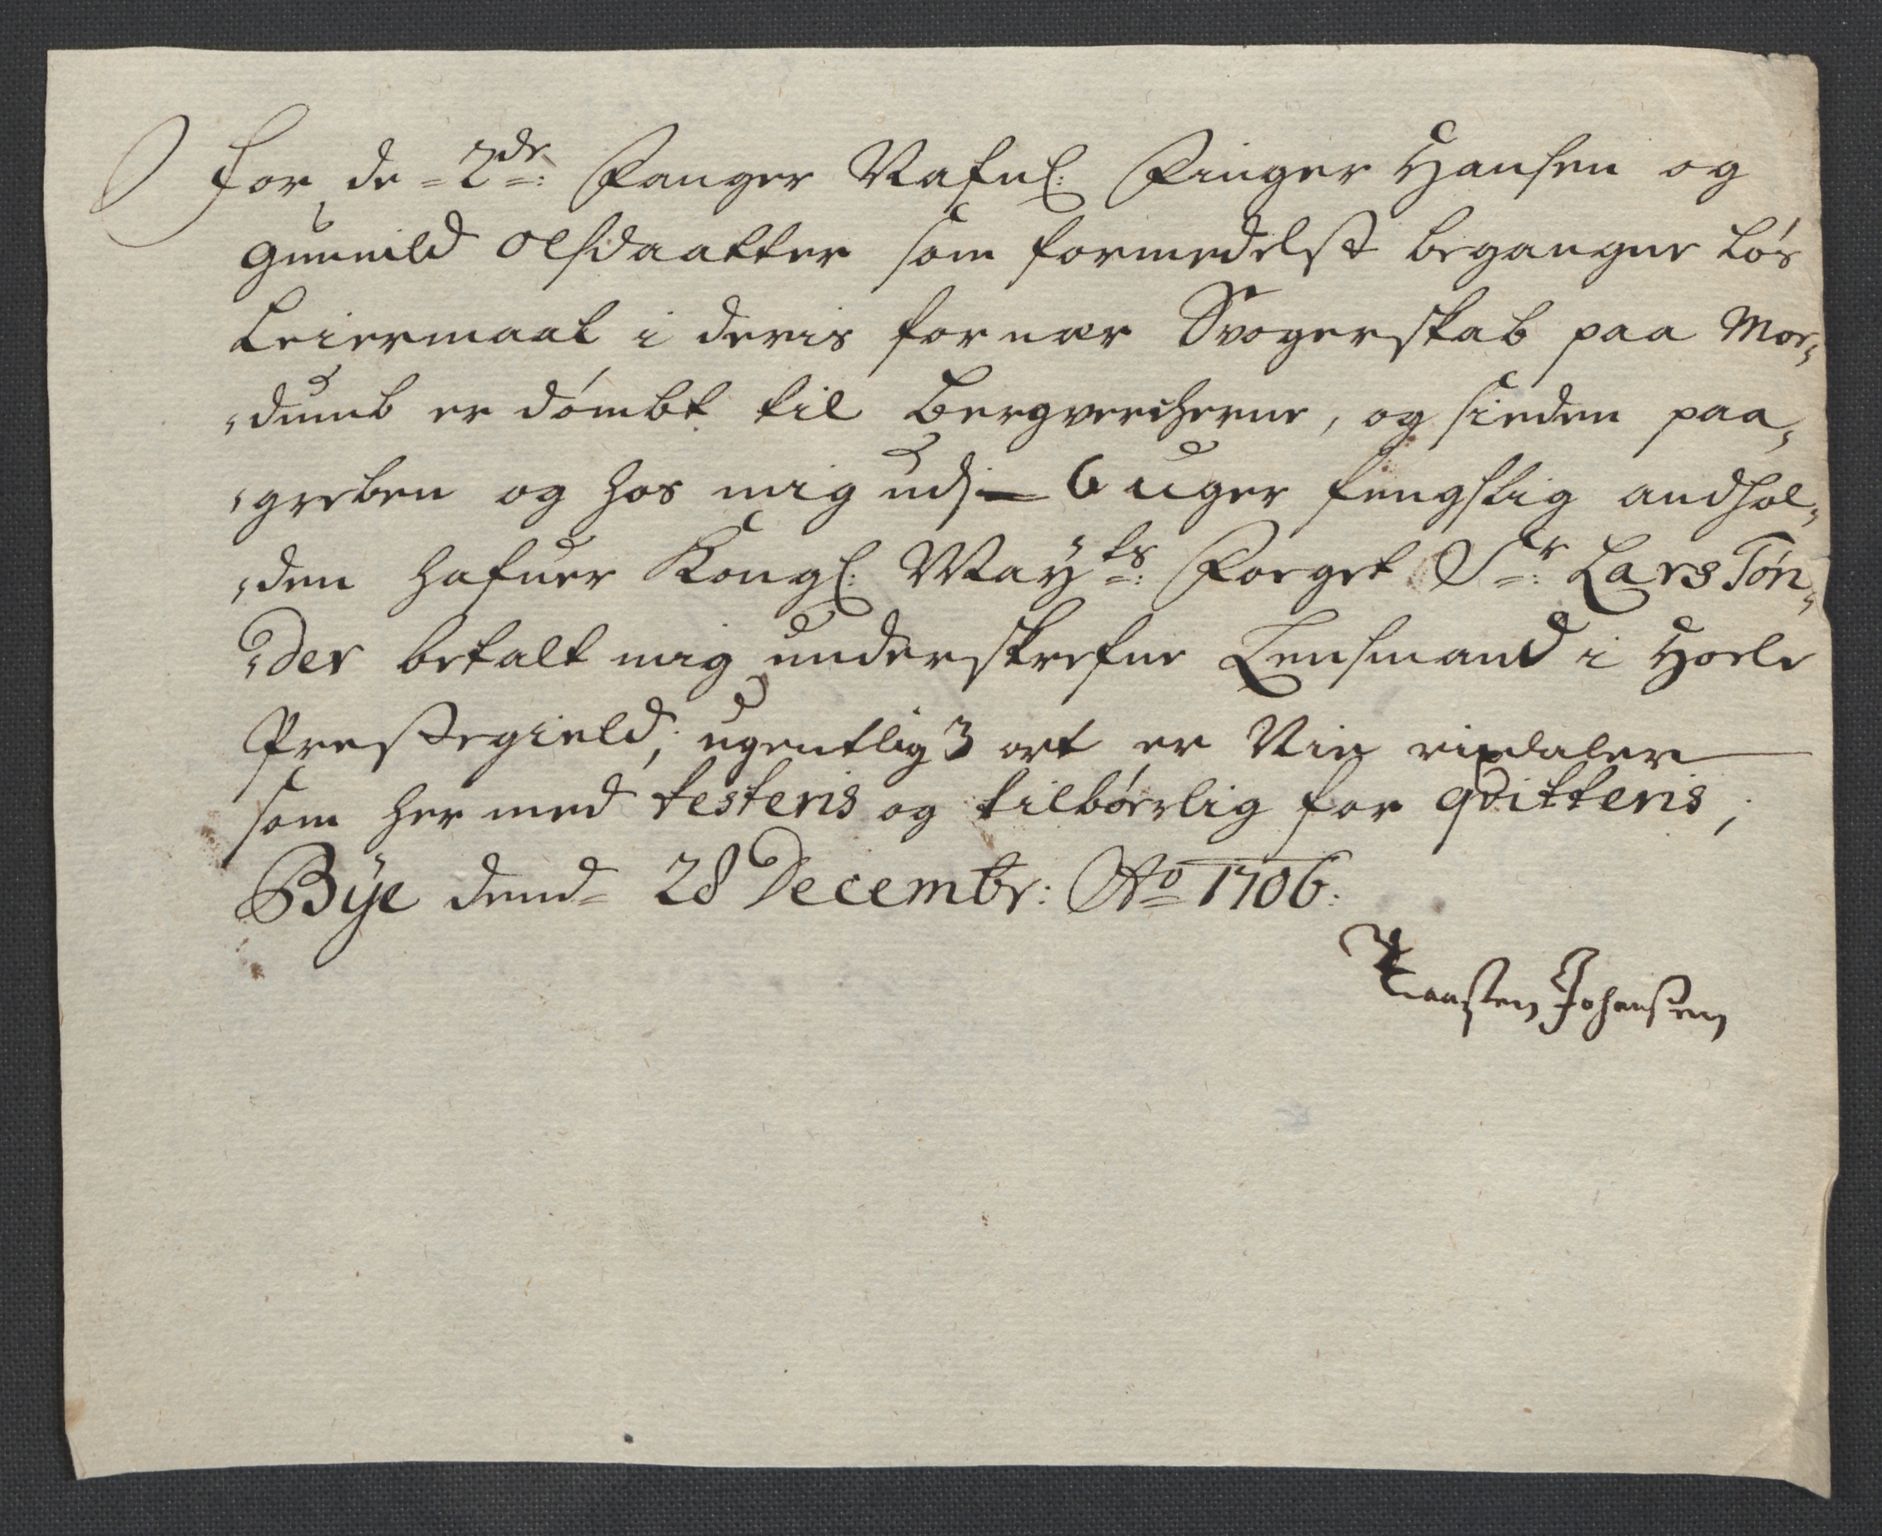 For de 2de: Fanger Nafnl: Finger Hansen og
Gunnild Olsdaatter som formedelst begangne Løs
Leiermaal i deris for nær Svogerskab paa Mor,,
,,dumb er dømbt til Bergvercherne, og sieden paa,,
,,greben og hos mig udj 6 uger fengslig andhol,,
,,den hafuer Kongl: Mayts: Foeget Sr: Lars Tøn,,
,,der betalt mig underskrefne Lensmand i Hoele
Prestegield, ugentlig 3 ort er Nie rixdaler
som her med testeris og tilbørlig for qvitteris;
Bÿe dend 28 Decembr: Ao 1706:
Johansen